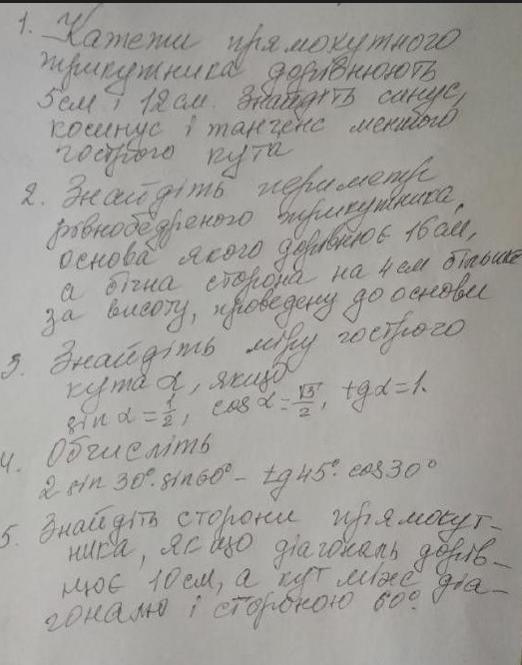 1. Катети прямокутного
трикутника дорівнюють
5 см і 12 см. Знайдіть синус,
косинус і тангенс меншого
гострого кута
2. Знайдіть периметр
рівнобедреного трикутника,
основа якого дорівнює 16 см,
а бічна сторона на 4 см більше
за висоту, проведену до основи
3. Знайдіть міру гострого
кута α, якщо
sin α = 1/2, cos α = √3/2, tg α = 1.
4. Обчисліть
2 sin 30° · sin 60° - tg 45° · cos 30°
5. Знайдіть сторони прямокут-
ника, якщо діагональ дорів-
нює 10 см, а кут між діа-
гоналлю і стороною 60°.